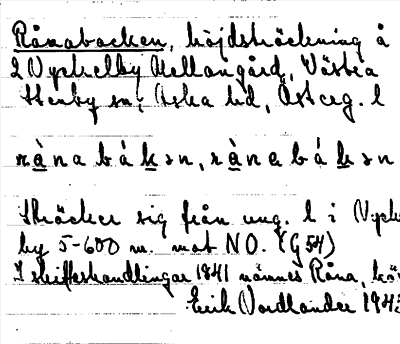 Rånabacken, höjdsträckning å
2 Nyckelby Mellangård, Västra
Stenby sn, Aska hd, Östcg. l
rànabákən, rànabákən
Sträcker sig från ung. l i Nycke
by 5-600 m. mot NO. (G 54)
I skifteshandlingar 1841 nämnes Råna, hö
Erik Nordlander 194